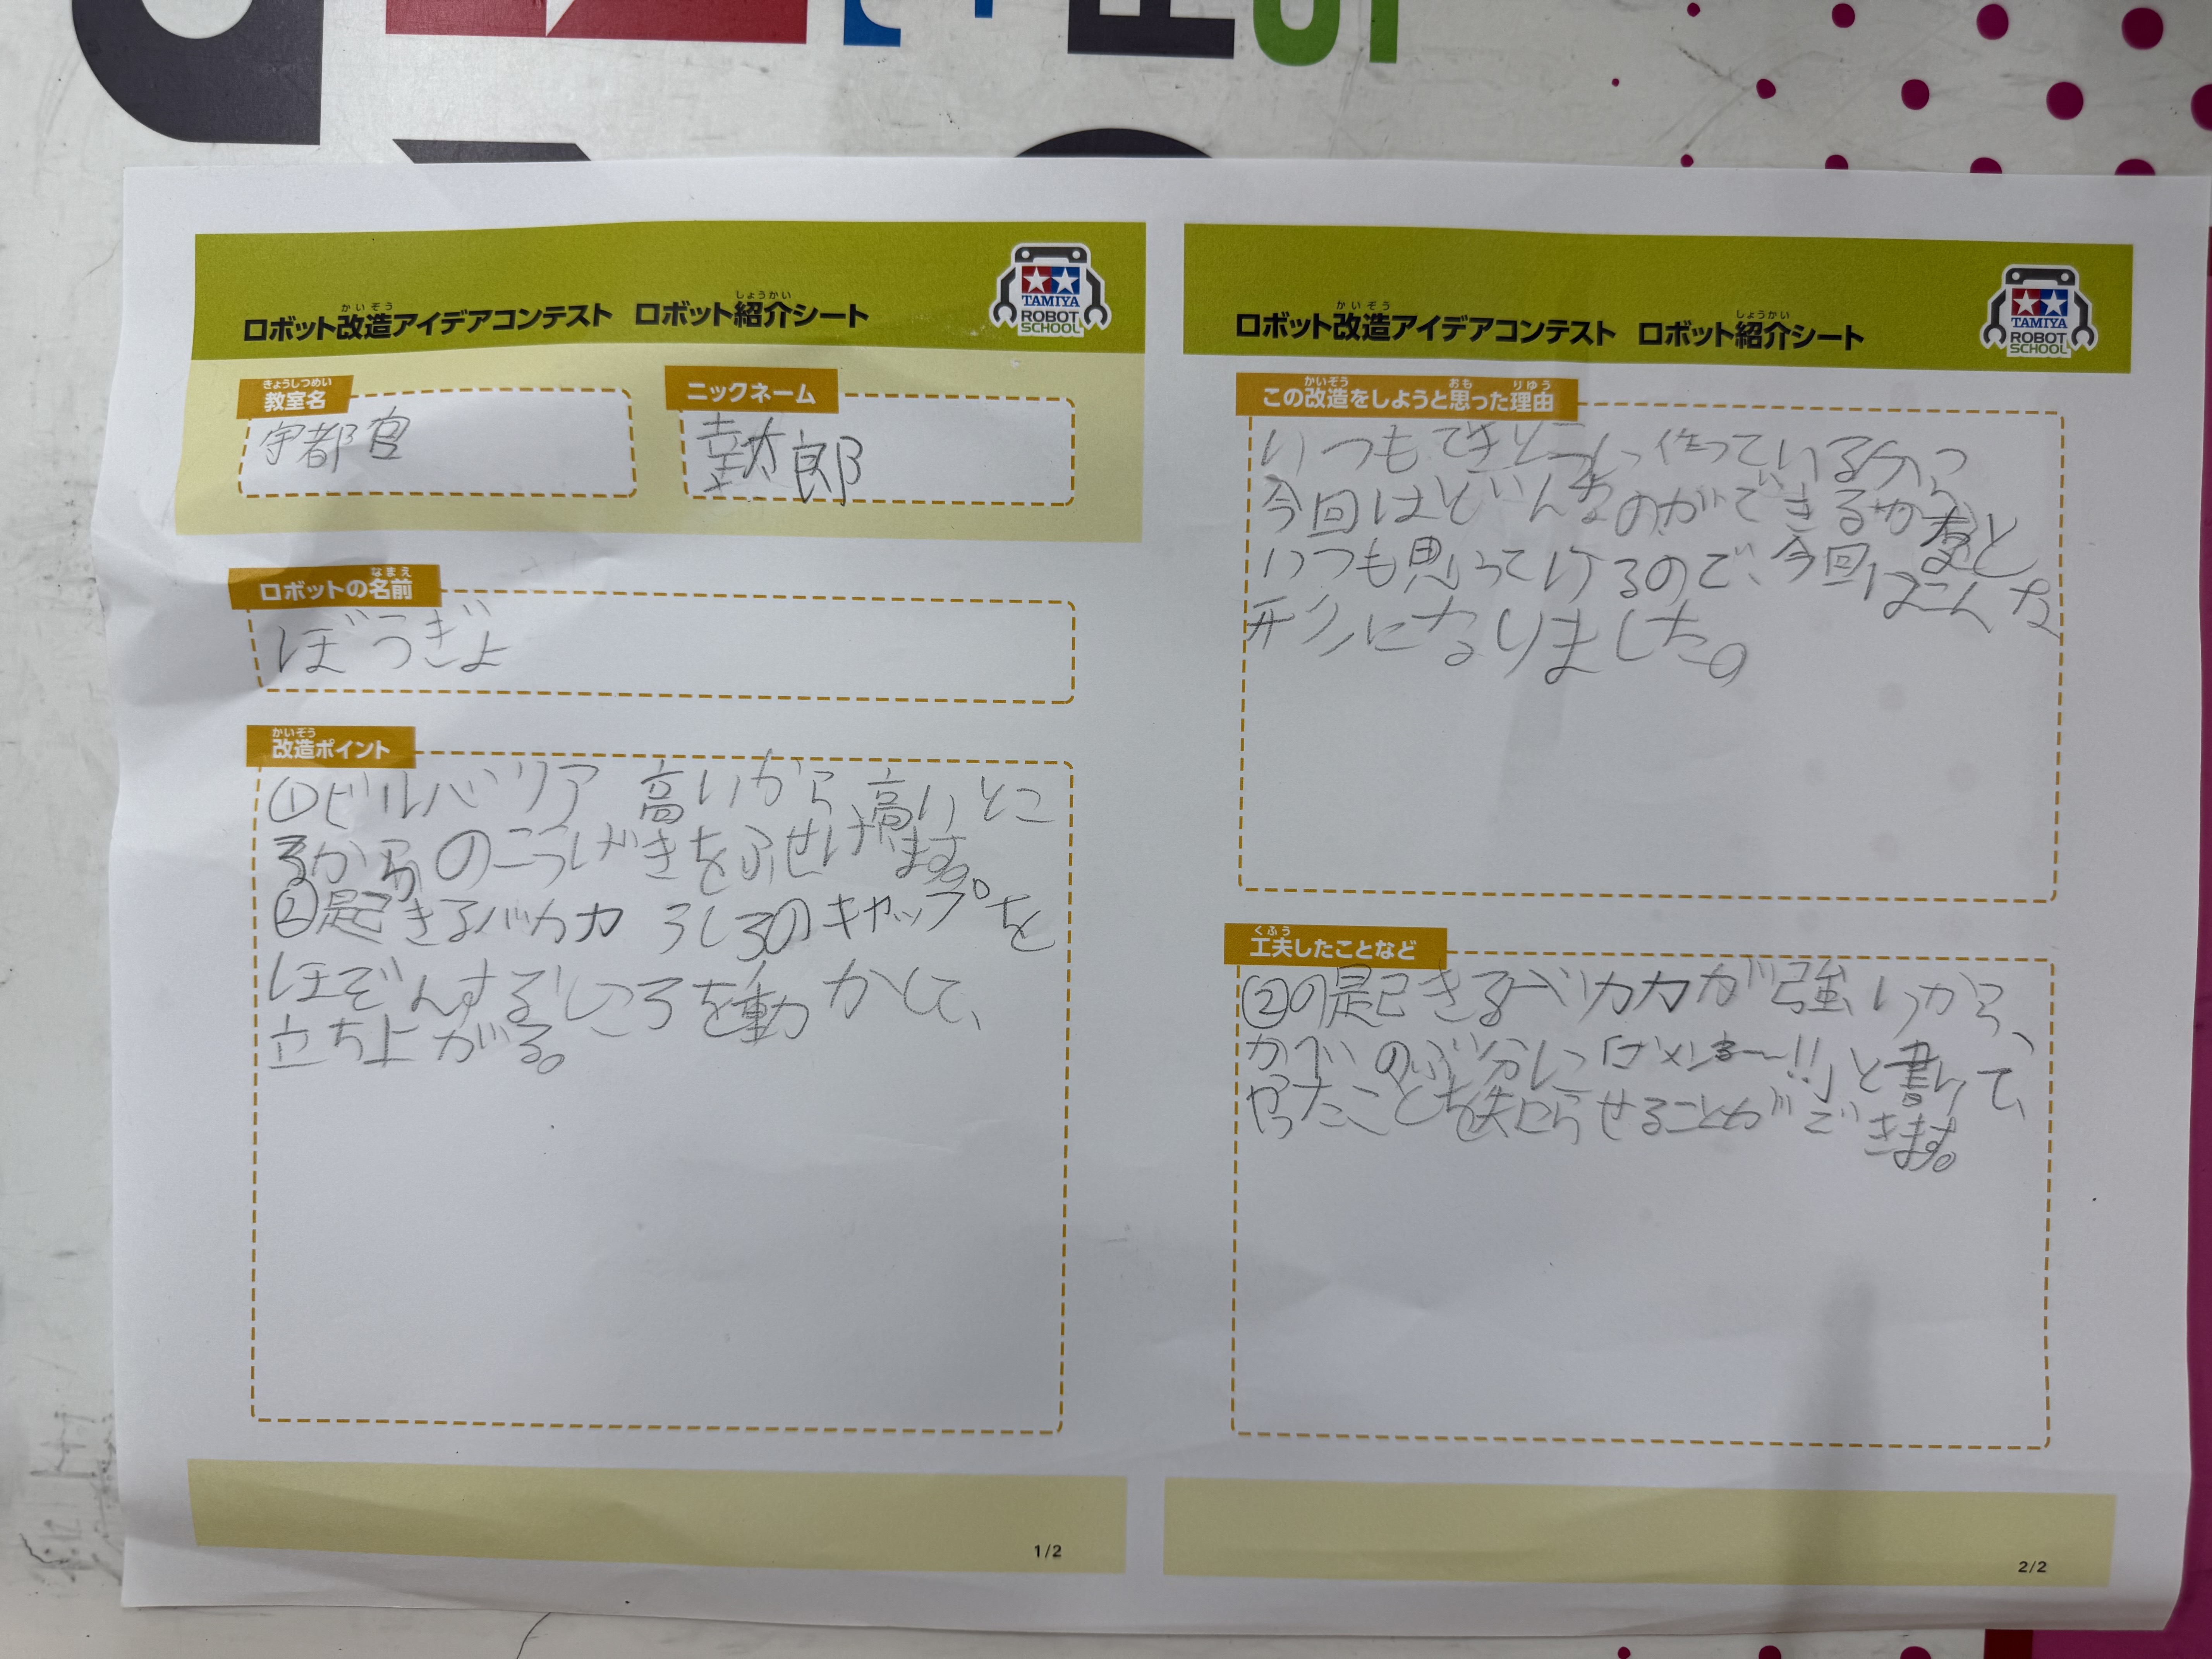 ロボット改造アイデアコンテスト ロボット紹介シート
かいぞう
しょうかい
TAMIYA
ROBOT
SCHOOL
きょうしつめい
教室名
宇都宮
ニックネーム
幸太郎
なまえ
ロボットの名前
ぼうぎよ
かいぞう
改造ポイント
①ビルバリア 高いから高いとこ
ろからのこうげきをふせけます。
②起きるバカ力 うしろのキャップを
ほぞんするしころを動かして、
立ち上がる。
1/2
ロボット改造アイデアコンテスト ロボット紹介シート
かいぞう
しょうかい
TAMIYA
ROBOT
SCHOOL
かいぞう おも りゆう
この改造をしようと思った理由
いつもてきとうに作っているから
今回はどんなのができるかなと
いつも思ってけるので、今回はこんな
形になりました。
くふう
工夫したことなど
②の起きるバカ力が強いから、
かべのぶ分に「 〜!!」と書いて、
やったことを知らせることができます。
2/2